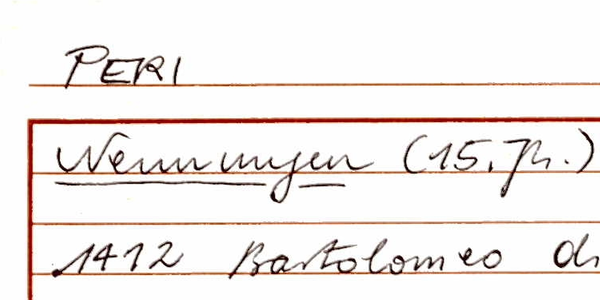 PERI
Nennungen (15. Jh.)
1412 Bartolomeo di